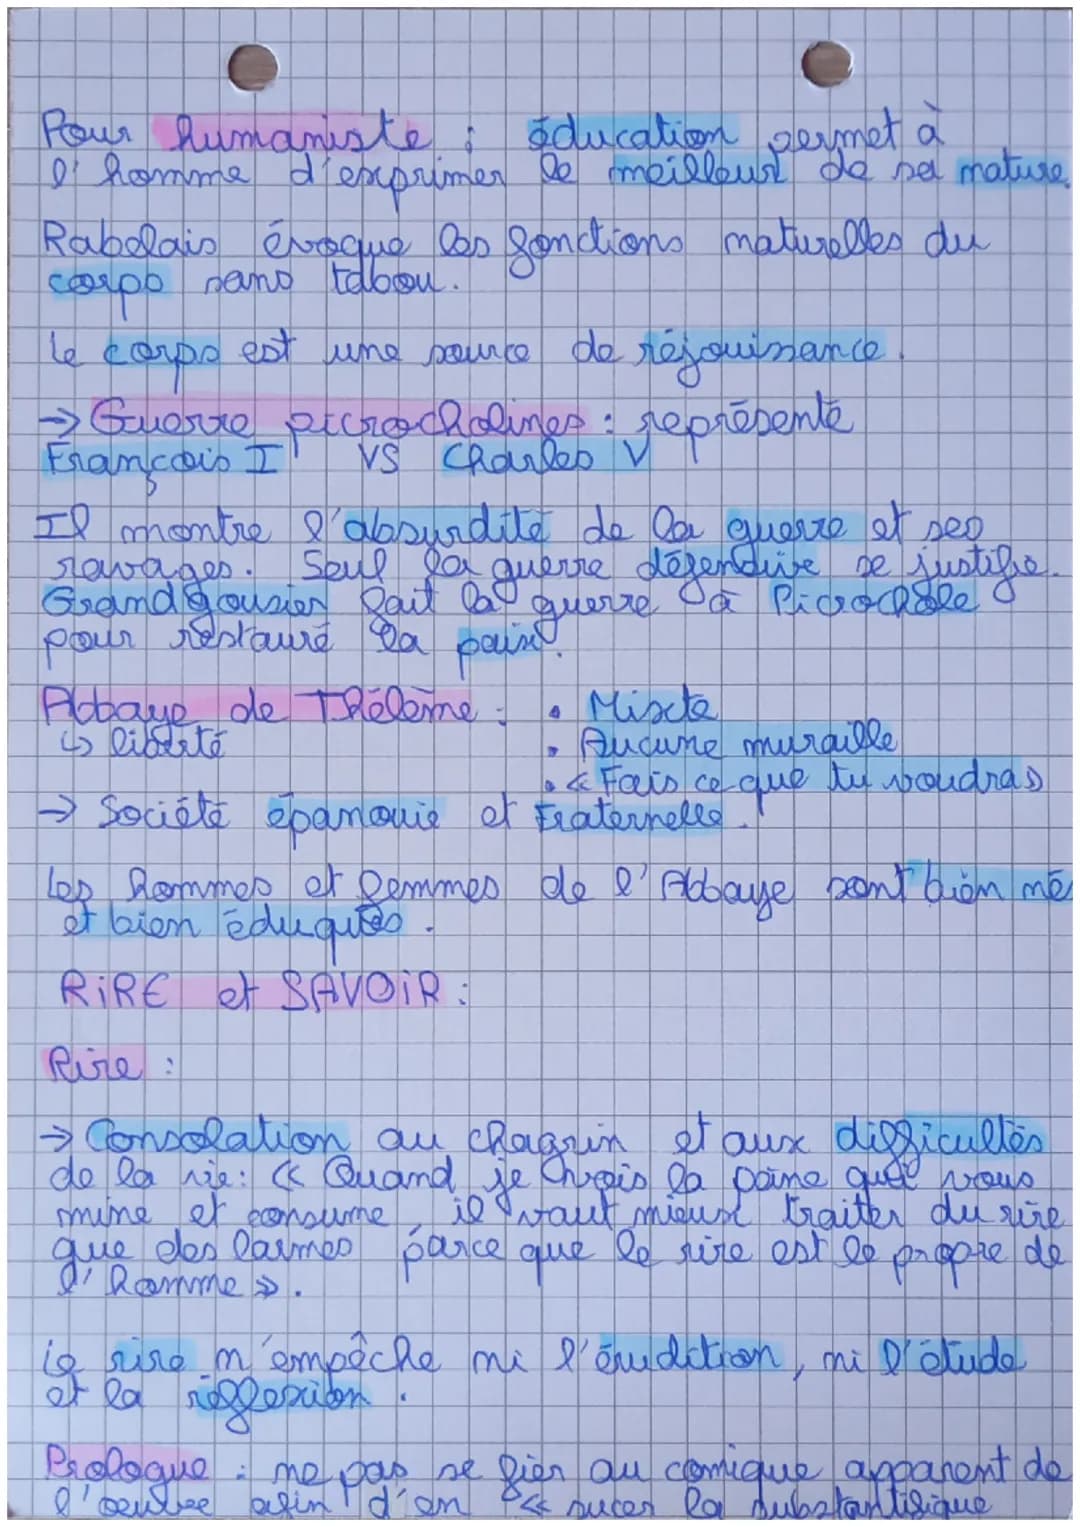 Pour humaniste : éducation permet à
l'homme d'exprimer le meilleur de sa nature.
Rabelais évoque les fonctions naturelles du
corps sans tabou.
Le corps est une source de réjouissance.
→ Guerre picrocholines : représente
François Ier VS Charles V
Il montre l'absurdité de la guerre et ses
ravages. Seul la guerre défensive se justifie.
Grandgousier fait la guerre à Picrochole
pour restauré la paix.
Abbaye de Thélème : • Mixte
↳ liberté • Aucune muraille
• « Fais ce que tu voudras »
→ Société épanouie et fraternelle.
Les hommes et femmes de l'Abbaye sont bien nés
et bien éduqués.
RIRE et SAVOIR :
Rire :
→ Consolation au chagrin et aux difficultés
de la vie : « Quand je vois la peine qui vous
mine et consume, il vaut mieux traiter du rire
que des larmes parce que le rire est le propre de
l'homme ».
Le rire n'empêche ni l'érudition, ni l'étude
et la réflexion.
Prologue : ne pas se fier au comique apparent de
l'œuvre afin d'en « sucer la substantifique